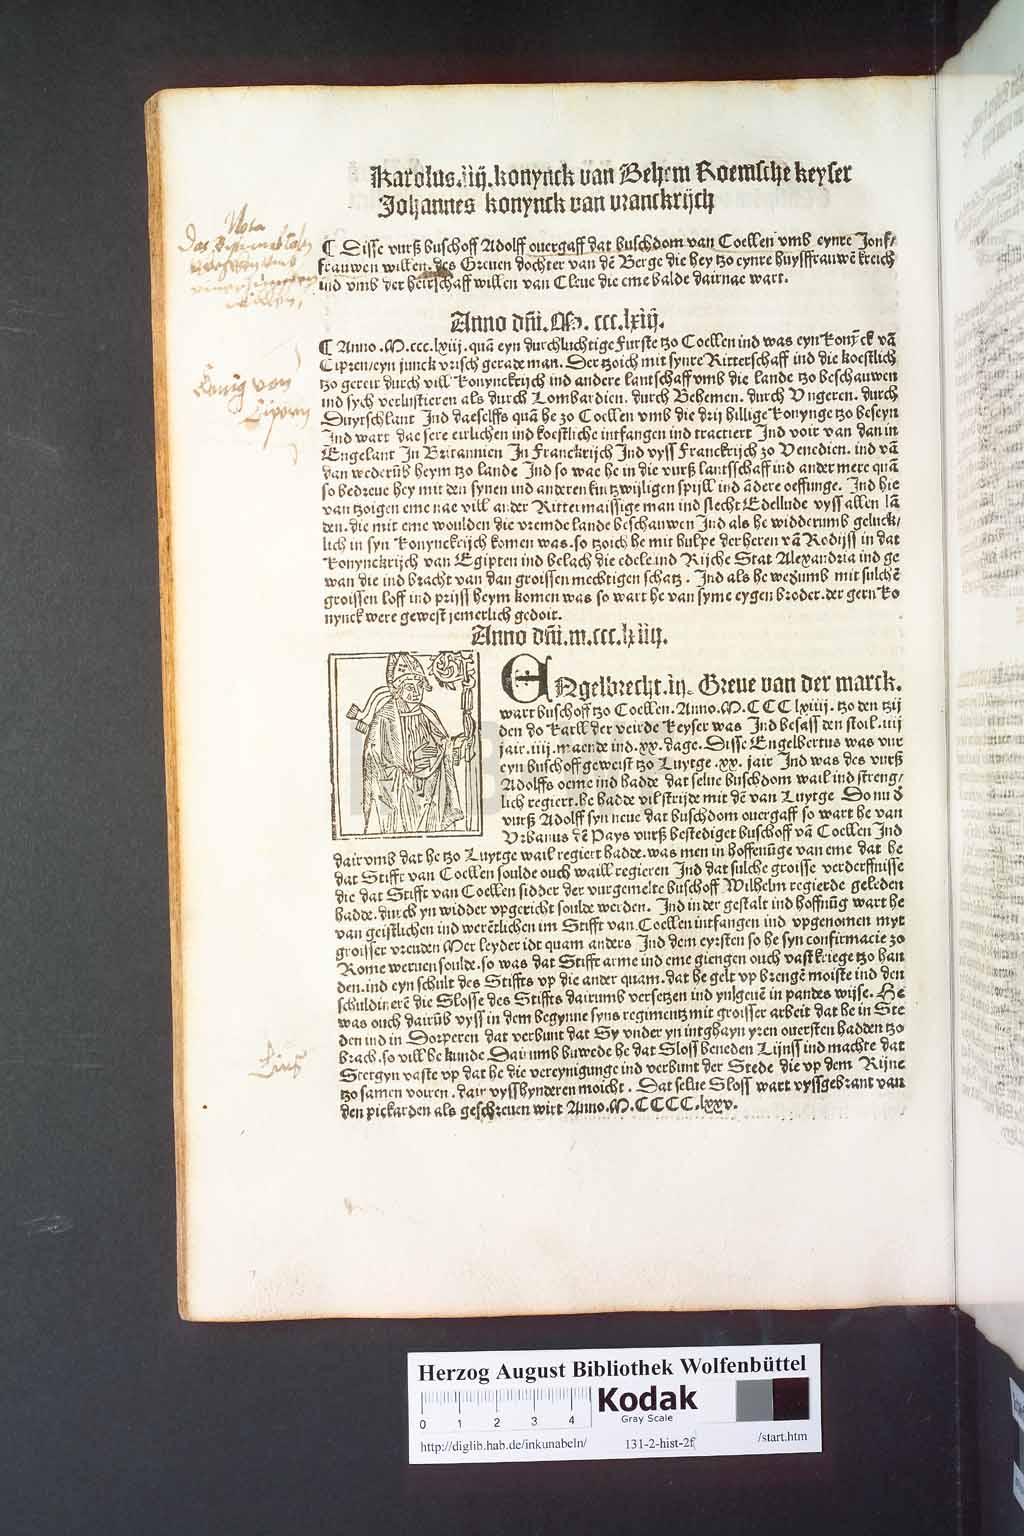 Karolus.iiij.konynck van Behem Roemsche keyser
Johannes konynck van vranckrijch
Nota
¶ Disse vurß buschoff Adolff ouergaff dat buschdom van Coellen vmb eynre Jonf/
frauwen willen. des Greuen dochter van dē Berge die hey tzo eynre huysffrauwē kreich
ind vmb der heirschaff willen van Cleue die eme balde dairnae wart.
Anno dñi.M. ccc.lxiij.
¶ Anno.M.ccc.lxiij.quā eyn durchluchtige Furste tzo Coellen ind was eyn konÿck vā
Cipren/eyn junck vrisch gerade man. Der tzoich mit synre Ritterschaff ind die koestlich
tzo gereir durch vill konynckrijch ind andere lantschaff vmb die lande tzo beschauwen
ind sych verlustieren als durch Lombardien. durch Behemen. durch Vngeren. durch
Duytschlant Ind daeselffs quā he zo Coellen vmb die drij hillige konynge tzo beseyn
Ind wart dae sere eirlichen ind koestliche intfangen ind tractiert Ind voir van dan in
Engelant In Britannien In Franckrijch Ind vyss Franckrijch zo Venedien. ind vā
dan wederūb heym tzo lande Ind so wae he in die vurß lantsschaff ind ander mere quā
so bedreue hey mit den synen ind anderen kurtzwijligen spijll ind ādere oeffunge. Ind hie
van tzoigen eme nae vill ander Rittermaissige man ind slecht Edellude vyss allen lā
den. die mit eme woulden die vremde lande beschauwen Ind als he widderumb geluck/
lich in syn konynckrijch komen was.so tzoich he mit hulpe der heren vā Rodijss in dat
konynckrijch van Egipten ind belach die edele.ind Rijche Stat Alexandria ind ge
wan die ind bracht van dan groissen mechtigen schatz. Ind als he wedumb mit sulchē
groissen loff ind prijss heym komen was so wart he van syme eygen broder.der gern ko
nynck were gewest jemerlich gedoit.
König von
Cipern
Anno dñi.m.ccc.lxiiij.
ENgelbrecht.iij. Greue van der marck.
wart buschoff tzo Coellen. Anno.M.CCC lxiiij. tzo den tzij
den do Karll der veirde keyser was Ind besass den stoil.iiij
jair.iiij.maende ind.xx.dage. Disse Engelbertus was vur
eyn buschoff geweist tzo Luytge.xx. jair Ind was des vurß
Adolffs oeme ind hadde dat selue buschdom wail ind streng/
lich regiert.he hadde vil strijde mit dē van Luytge Do nu d
vurß Adolff syn neue dat buschdom ouergaff so wart he van
Vrbanus dē Pays vurß bestediget buschoff vā Coellen Ind
dair vmb dat he tzo Luytge wail regiert hadde.was men in hoffenūge van eme dat he
dat Stifft van Coellen soulde ouch waill regieren Ind dat sulche groisse verderffnisse
die dat Stifft van Coellen sidder der vurgemelte buschoff Wilhelm regierde geleden
hadde.durch yn widder vpgericht soulde werden. Ind in der gestalt ind hoffnūg wart he
van geistlichen ind werētlichen im Stifft van Coellen intfangen ind vpgenomen myt
groisser vreuden Mer leyder idt quam anders Ind dem eyrsten so he syn confirmacie zo
Rome weruen soulde.so was dat Stifft arme ind eme giengen ouch vast kriege tzo han
den.ind eyn schult des Stiffts vp die ander quam.dat he gelt vp brengē moiste ind den
schuldinerē die Slosse des Stiffts dairumb versetzen ind ynlgeuē in pandes wijse. He
was ouch dairūb vyss in dem begynne syns regimentz mit groisser arbeit dat he in Ste
den ind in Dorperen dat verbunt dat Sy vnder yn intghayn yren ouersten hadden tzo
brach.so vill he kunde Dairumb buwede he dat Sloss beneden Lijnss ind machte dat
Stergyn vaste vp dat he die vereynigunge ind verbunt der Stede die vp dem Rijne
tzo samen voiren. dair vyss hynderen moicht. Dat selue Sloss wart vyssgebrant van
den pickarden als geschreuen wirt Anno.M.CCCC.lxxv.
Herzog August Bibliothek Wolfenbüttel
0 1 2 3 4
Kodak
Gray Scale
http://diglib.hab.de/inkunabeln/ 131-2-hist-2f /start.htm